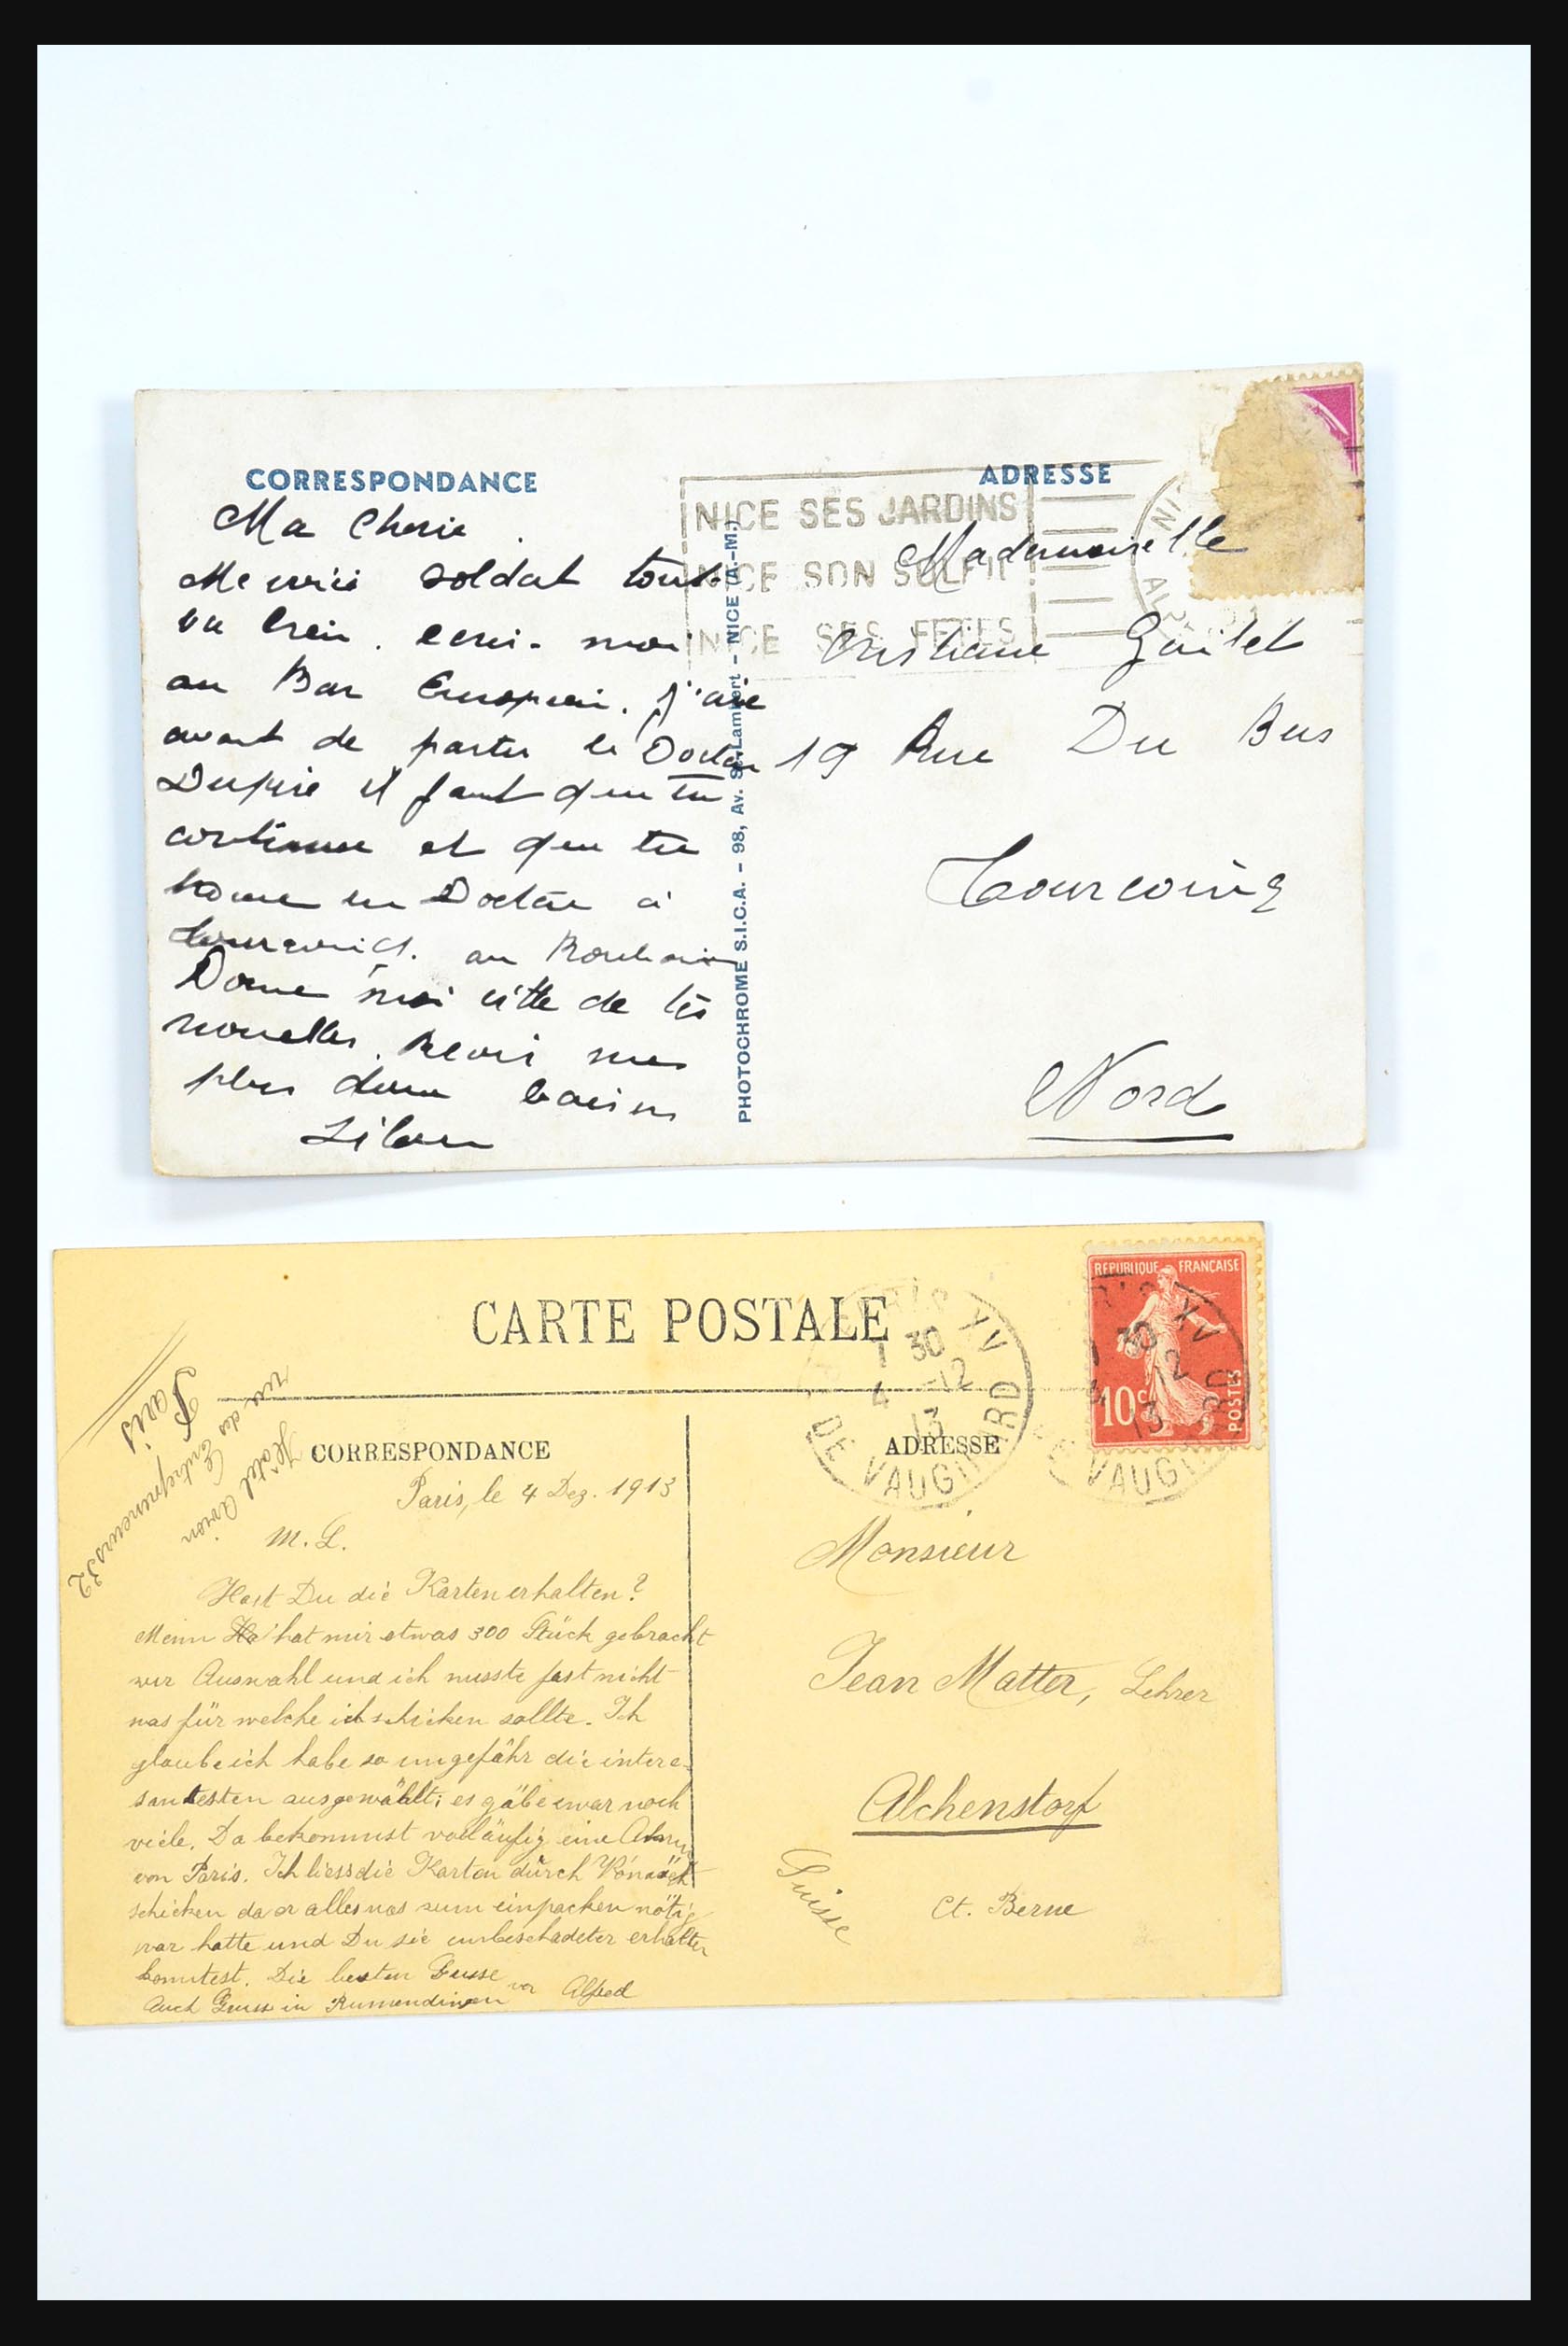 CORRESPONDANCE
ADRESSE
NICE SES JARDINS
NICE SON SOLEIL
NICE SES FETES
Ma Cherie
soldat tout
va bien. ecris-moi
au Bar European. j'aie
avant de partir le Docteur
Dupré il faut que tu
continue et que tu
trouve un Docteur à
Tourcoing. au Roubaix
Donne moi vitte de tes
nouvelles. Recois mes
plus doux baisers
Mademoiselle
Cristiane
19 Rue Du Bus
Tourcoing
Nord
PHOTOCHROME S.I.C.A. - 98, Av. St-Lambert - NICE (A.-M.)
CARTE POSTALE
REPUBLIQUE FRANÇAISE
10c
POSTES
PARIS XV
1 30
4 -12
13
DE VAUGIRARD
CORRESPONDANCE
ADRESSE
Hôtel
rue des Entrepreneurs 32
Paris
Paris, le 4 Dez. 1913
M. L.
Hast Du die Karten erhalten?
hat mir etwas 300 Stück gebracht
zur Auswahl und ich wusste fast nicht
was für welche ich schicken sollte. Ich
glaube ich habe so ungefähr die intere-
santesten ausgewählt; es gäbe zwar noch
viele. Da bekommst vorläufig eine
von Paris. Ich liess die Karten durch
schicken da er alles was zum einpacken nötig
war hatte und Du sie unbeschadeter erhalten
konntest. Die besten Grüsse
Auch Gruss in Rumendingen von Alfred
Monsieur
Jean Matter, Lehrer
Alchenstorf
Ct. Berne
Suisse